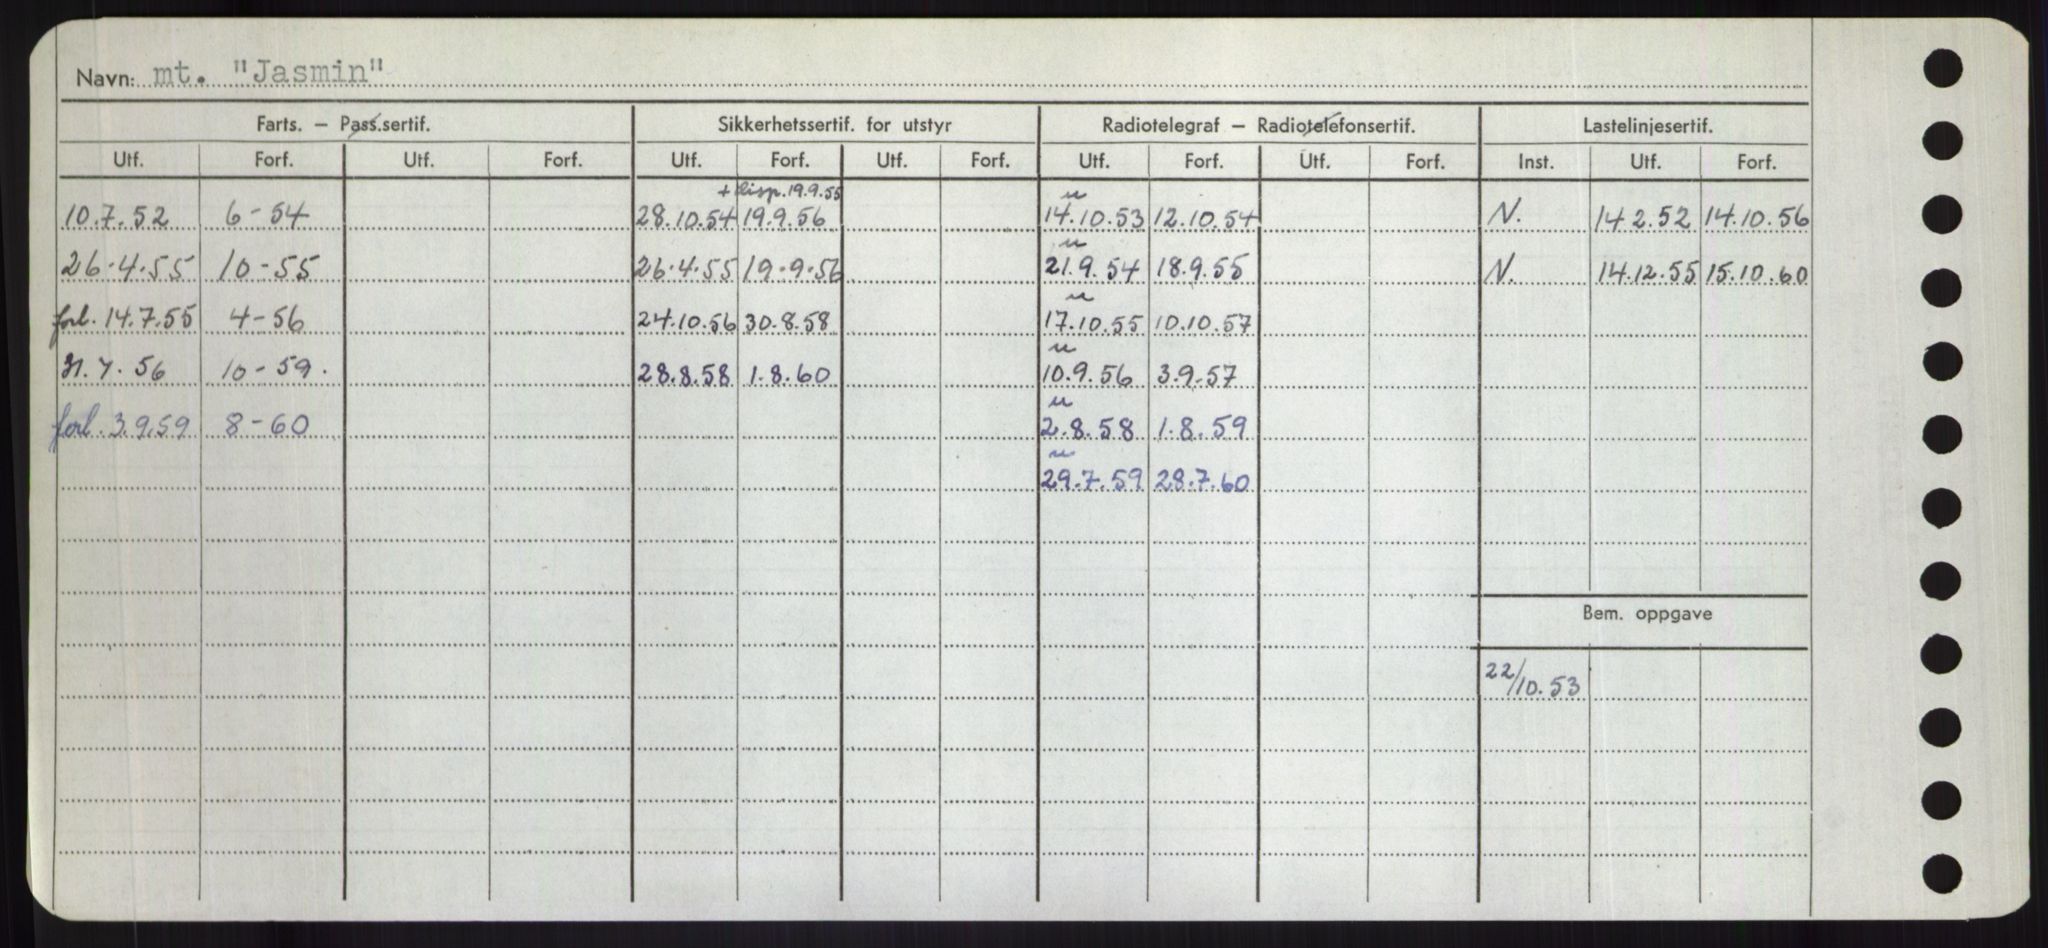 Navn: mt. "Jasmin"
Farts. – Pass.sertif. Sikkerhetssertif. for utstyr Radiotelegraf – Radiotelefonsertif. Lastelinjesertif.
Utf. Forf. Utf. Forf. Utf. Forf. Utf. Forf. Utf. Forf. Utf. Forf. Inst. Utf. Forf.
+ Disp. 19.9.55 u
10.7.52 6-54 28.10.54 19.9.56 14.10.53 12.10.54 N. 14 2.52 14.10.56
u
26.4.55 10-55 26.4.55 19.9.56 21.9.54 18.9.55 N. 14.12.55 15.10.60
u
forl. 14.7.55 4-56 24.10.56 30.8.58 17.10.55 10.10.57
u
7.56 10-59. 28.8.58 1.8.60 10.9.56 3.9.57
u
forl. 3.9.59 8-60 2.8.58 1.8.59
u
29.7.59 28.7.60
Bem. oppgave
22/10.53